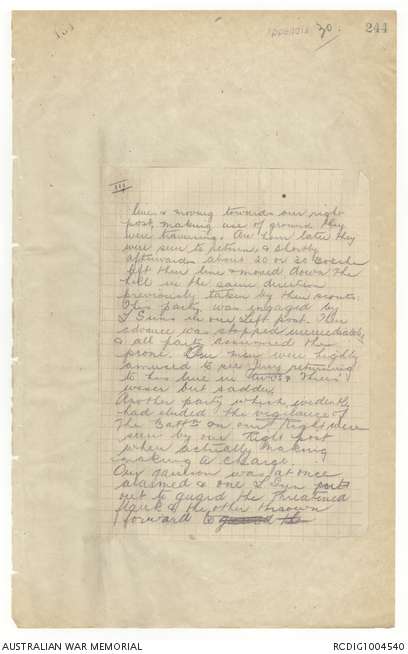 Appendix 30. 244
III
line & moving towards our right
post, making use of ground they
were traversing. An hour later they
were seen to return, & shortly
afterwards about 20 or 30 Bosche
left their line & moved down the
hill in the same direction
previously taken by their scouts.
This party was engaged by
L Guns in our Left Post. Their
advance was stopped immediately,
& all party assumed the
prone. Our men were highly
amused to see Jerry returning
to his line in twos & threes
wiser but sadder.
Another party which evidently
had eluded the vigilance of
the Battn on our Right were
seen by our Right post
when actually making
making a charge.
Our garrison was at once
alarmed & one L Gun
out to guard the threatened
flank & the other thrown
forward to guard the
AUSTRALIAN WAR MEMORIAL
RCDIG1004540